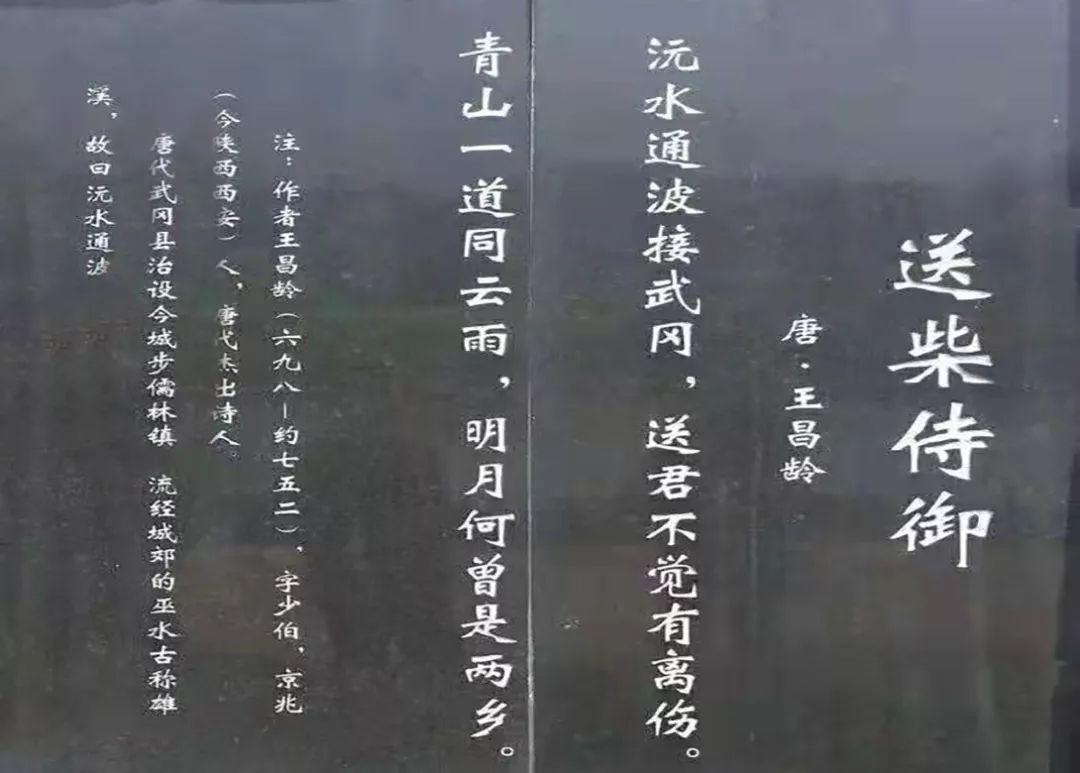 送柴侍御
唐·王昌龄
沅水通波接武冈，送君不觉有离伤。
青山一道同云雨，明月何曾是两乡。
注：作者王昌龄（六九八—约七五二），字少伯，京兆
（今陕西西安）人，唐代杰出诗人。
唐代武冈县治设今城步儒林镇 流经城郊的巫水古称雄
溪，故曰沅水通波